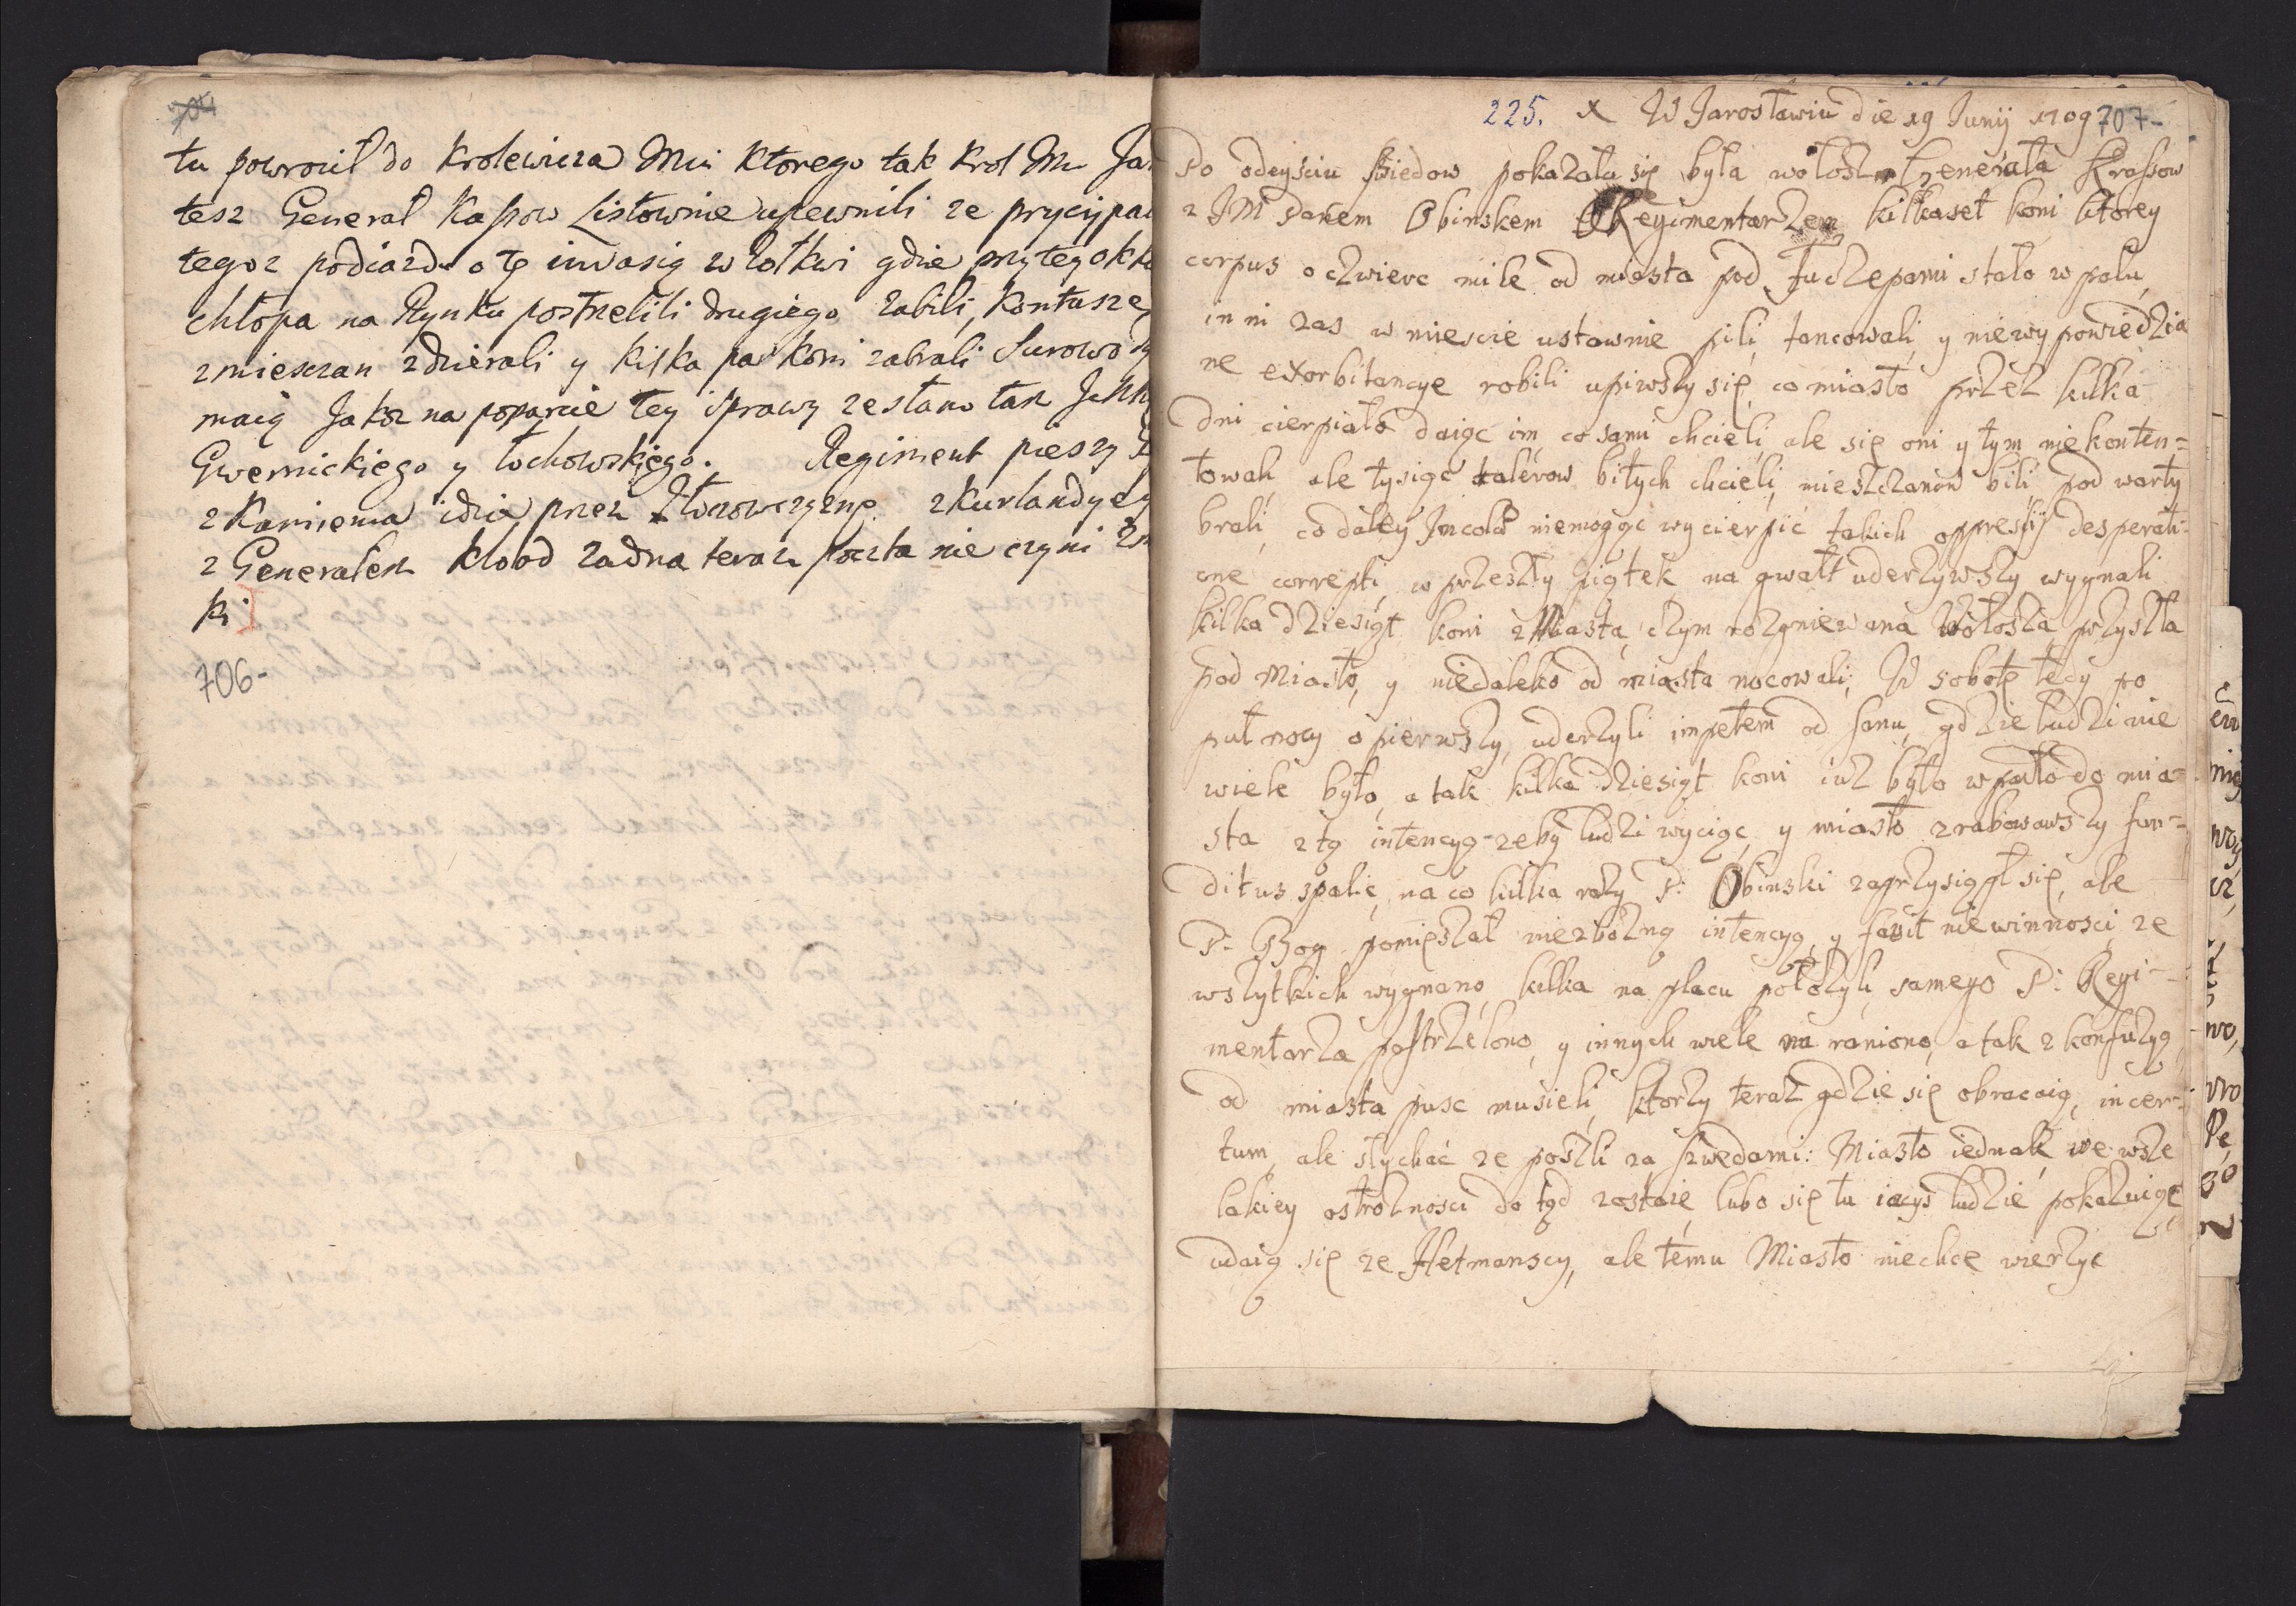 704
tu powrocił do Krolewicza Mci Ktorego tak Krol Mc
tesz Generał Kaſsow Listownie upewnili ze
tegoz podiazdu o tę invasią w Zołkwi gdzie przy tey
chłopa na Rynku postrzelili drugiego zabili, Kontusze
z miesczan zdzierali y kilka par Koni zabrali Surowo
maią Jakoz na poparcie tey sprawy zesłano tam
Gwernickiego y Łochowskiego. Regiment pieszy
z Kamienca idzie przez z Kurlandyey
z Generałem Kload zadna teraz poczta nie czyni
ki
706-
225. x W Jarosławiu die 19 Junij 1709 707-
Po odeyściu Szwedow pokazała się była wołosz Generała Kraſsow
z JM Panem Obinskem Regimentarzem kilkaset koni ktorey
corpus o czwierc mile od miasta pod Tuczepami stało w polu,
inni zas w miescie ustawnie pili, tancowali, y niewypowiedzia
ne exorbitancye robili upiwszy się, co miasto przez kilka
dni cierpiało daiąc im co sami chcieli, ale się oni y tym niekonten=
towali, ale tysiąc talerow bitych chcieli, mieszczanow bili pod warty
brali, co daley Incolae niemogąc wycierpić takich oppresiy desperati=
one correpti, w przeszły piątek na gwałt uderzywszy wygnali
kilka dziesiąt koni z Miasta, czym rozgniewana Wołosza przyszła
pod Miasto, y niedaleko od miasta nocowali, W sobotę tedy po
puł nocy o pierwszy, uderzyli impetem od Sanu, gdzie ludzi nie
wiele było, a tak kilka dziesiąt koni iuz było wpadło do mia=
sta z tą intencyą zeby ludzi wyciąć, y miasto zrabowawszy fun=
ditus spalić, na co kilka razy P: Obinski zaprzysiągł się, ale
P: Bog pomięszał niezbozną intencyą, y favit niewinnosci, ze
wszytkich wygnano, kilka na placu połozyli, samego P: Regi=
mentarza postrzelono, y innych wiele na raniono, a tak z konfuzyą
od miasta pusc musieli, ktorzy teraz gdzie się obracaią, incer=
tum, ale słychać ze poszli za Szwedami: Miasto iednak we wsze
lakiey ostroznosci do tąd zostaie, lubo się tu iacys ludzie pokazuią,
udaią się ze Hetmanscy, ale temu Miasto niechce wierzyc